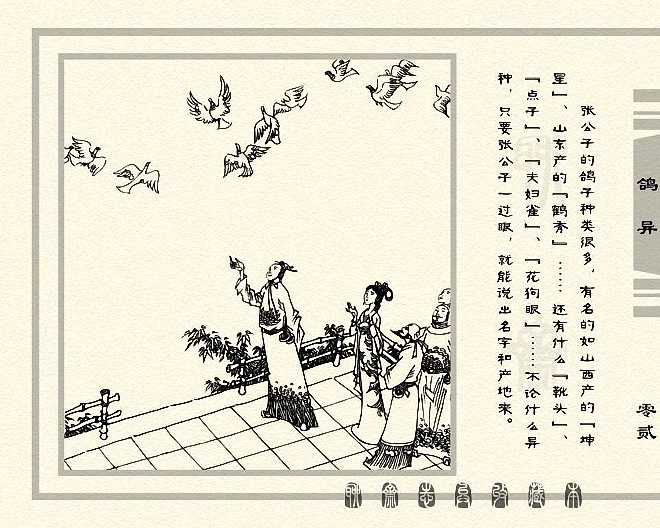 张公子的鸽子种类很多，有名的如山西产的「坤
星」、山东产的「鹤秀」……还有什么「靴头」、
「点子」、「夫妇雀」、「花狗眼」……不论什么异
种，只要张公子一过眼，就能说出名字和产地来。
鸽异
零贰